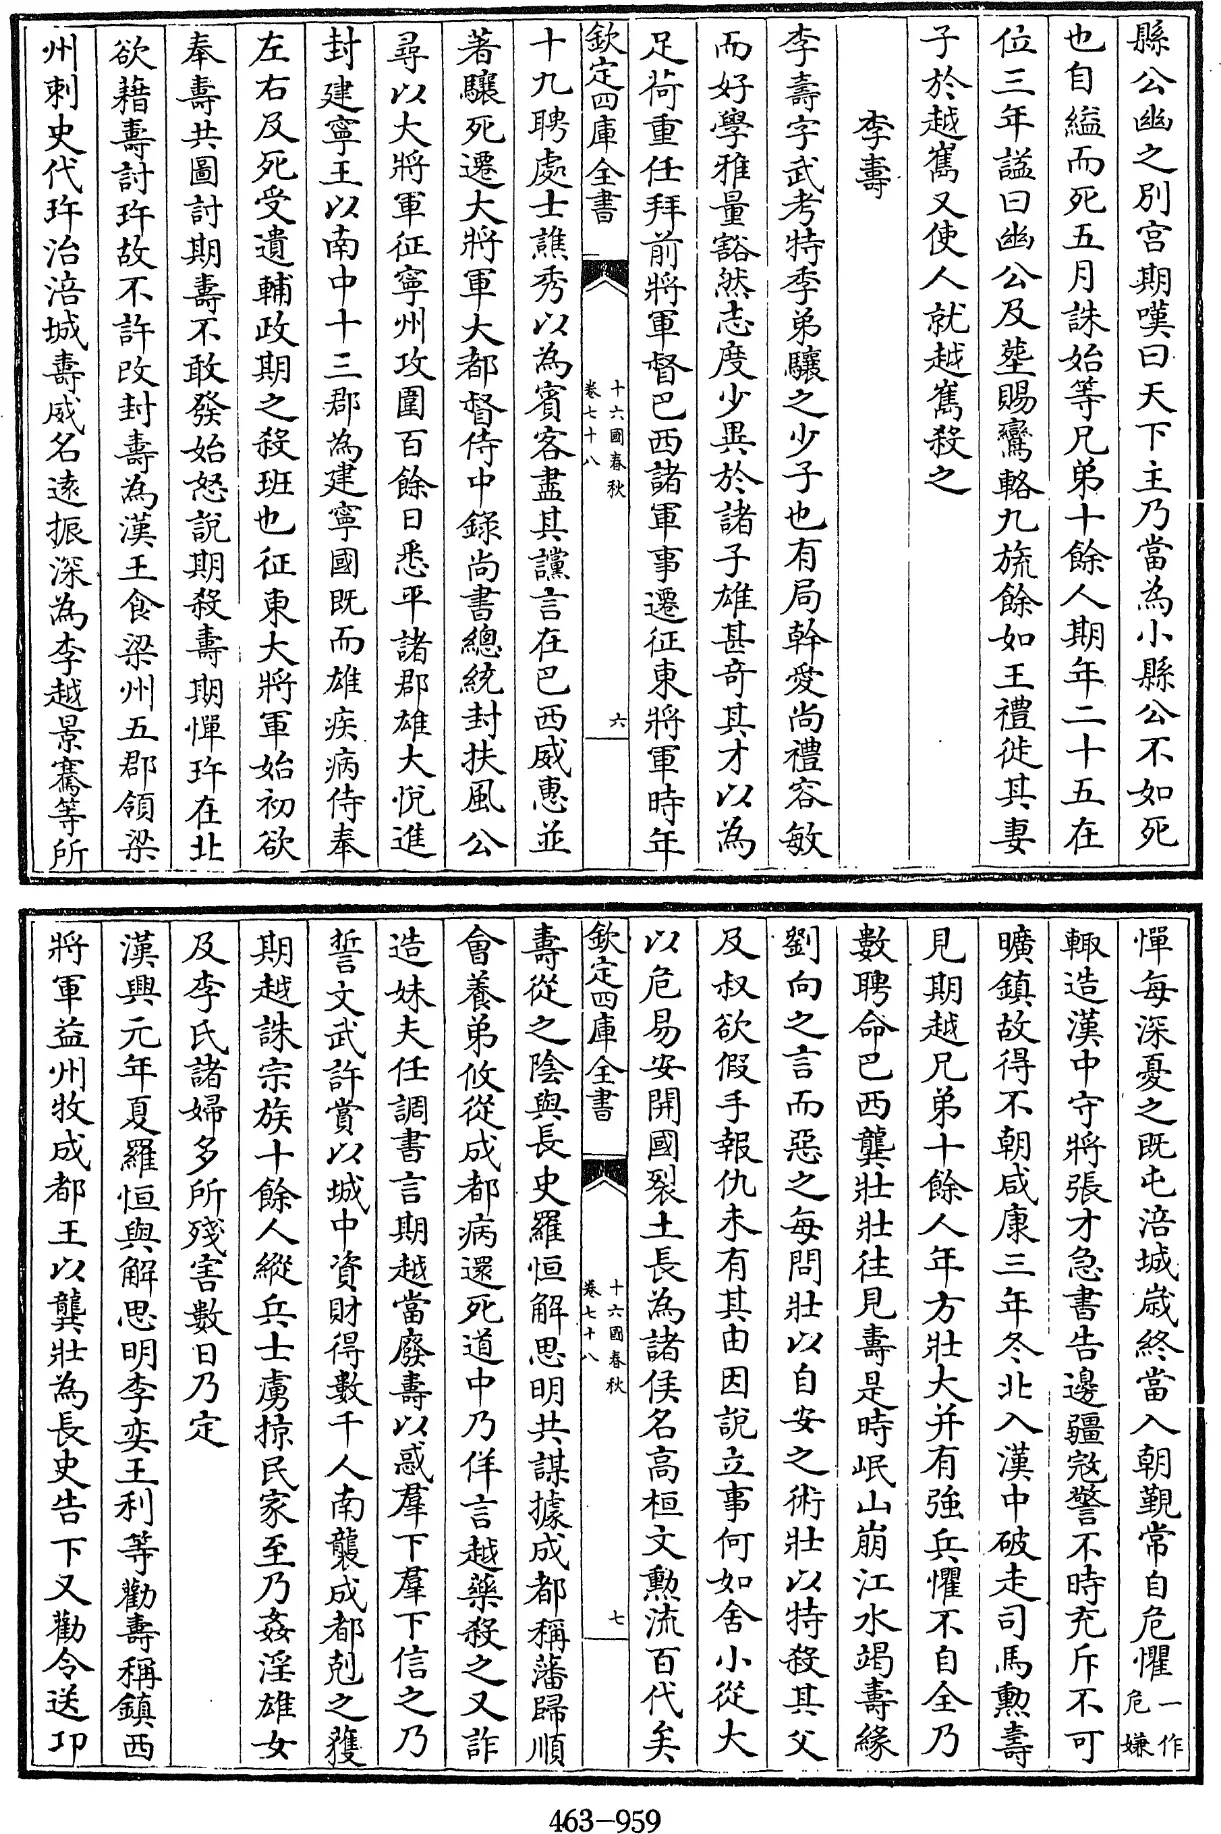 縣公幽之别宫期嘆曰天下主乃當為小縣公不如死
也自縊而死五月誅始等兄弟十餘人期年二十五在
位三年謚曰幽公及塟賜鸞輅九旒餘如王禮徙其妻
子於越嶲又使人就越嶲殺之
李壽
李壽字武考特季弟驤之少子也有局幹愛尚禮容敏
而好學雅量豁然志度少異於諸子雄甚奇其才以為
足荷重任拜前將軍督巴西諸軍事遷征東將軍時年
欽定四庫全書
十六國春秋
卷七十八
六
十九聘處士譙秀以為賓客盡其讜言在巴西威惠並
著驤死遷大將軍大都督侍中錄尚書總統封扶風公
尋以大將軍征寧州攻圍百餘日悉平諸郡雄大悅進
封建寧王以南中十三郡為建寧國既而雄疾病侍奉
左右及死受遺輔政期之殺班也征東大將軍始初欲
奉壽共圖討期壽不敢發始怒說期殺壽期憚玝在北
欲藉壽討玝故不許改封壽為漢王食梁州五郡領梁
州刺史代玝治涪城壽威名遠振深為李越景騫等所
憚每深憂之既屯涪城歳終當入朝覲常自危懼一作
危嫌
輙造漢中守將張才急書告邊疆宼警不時充斥不可
曠鎮故得不朝咸康三年冬北入漢中破走司馬勲壽
見期越兄弟十餘人年方壯大并有強兵懼不自全乃
數聘命巴西龔壯壯往見壽是時岷山崩江水竭壽緣
劉向之言而惡之每問壯以自安之術壯以特殺其父
及叔欲假手報仇未有其由因說立事何如舍小從大
以危易安開國裂土長為諸侯名高桓文勲流百代矣
欽定四庫全書
十六國春秋
卷七十八
七
壽從之陰與長史羅恒解思明共謀據成都稱藩歸順
會養弟攸從成都病還死道中乃佯言越藥殺之又詐
造妹夫任調書言期越當廢壽以惑羣下羣下信之乃
誓文武許賞以城中資財得數千人南襲成都剋之獲
期越誅宗族十餘人縱兵士虜掠民家至乃姦淫雄女
及李氏諸婦多所殘害數日乃定
漢興元年夏羅恒與解思明李奕王利等勸壽稱鎮西
將軍益州牧成都王以龔壯為長史告下又勸令送卭
463-959